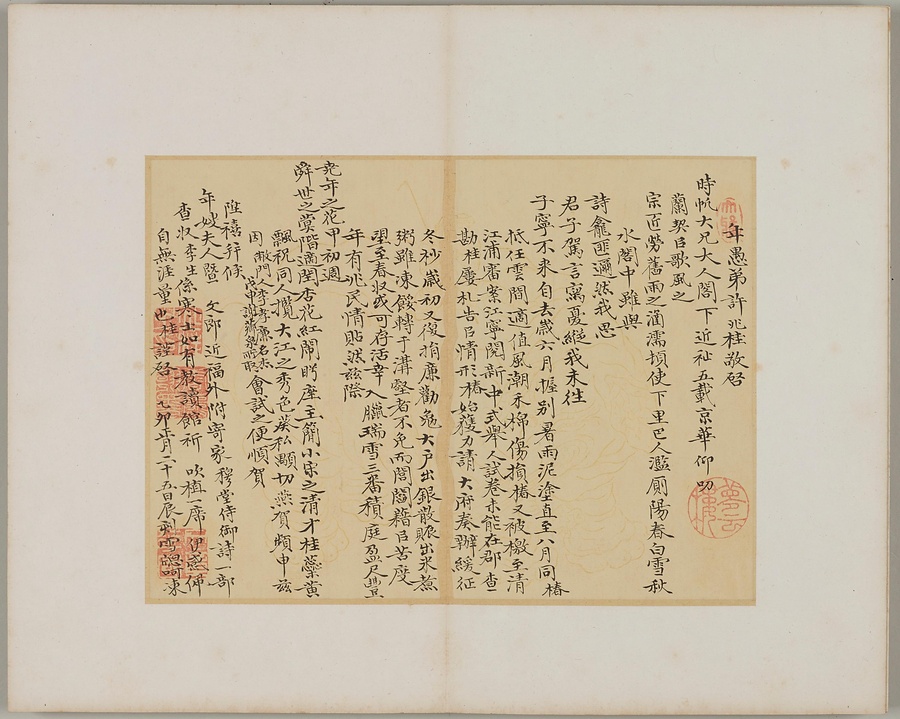 年愚弟許兆桂敬启
時帆大兄大人閣下近祉五載京華仰叨
蘭契启歌風之
宗匠勞舊雨之濡須使下里巴人濫廁陽春白雪秋
水閣中雖與
詩龕匪遥然我思
君子駕言寫憂縱我未往
子寧不来自去歲六月握别暑雨泥塗直至八月同椿
抵任雲間適值風潮禾棉傷損椿又被檄至清
江浦審案江寧閱新中式舉人試卷未能在郡查
勘桂屢札告启情形椿始獲力請大府奏辦緩征
冬杪歲初又復捐廉勸勉大户出銀散賑出米煮
粥雖凍餒轉于溝壑者不免而閭閻藉启苦度
望至春收或可存活幸入臘瑞雪三番積庭盈尺豐
年有兆民情貼然兹際
堯年之花甲初週
舜世之蓂階適閏杏花紅鬧盻座主簡小宗之清才桂蘂黄
飄祝同人攬大江之秀色葵私顒切燕賀頻申兹
因敝門人李孝廉名杰會試之便順賀
陞禧并候
年嫂夫人暨 文郎近福外附寄家穆堂侍御詩一部
查收李生係寒士如有教讀館祈 吹植一席伊感伸
自無涯量也桂謹启 乙卯正月二十五日辰刻雪窗呵凍